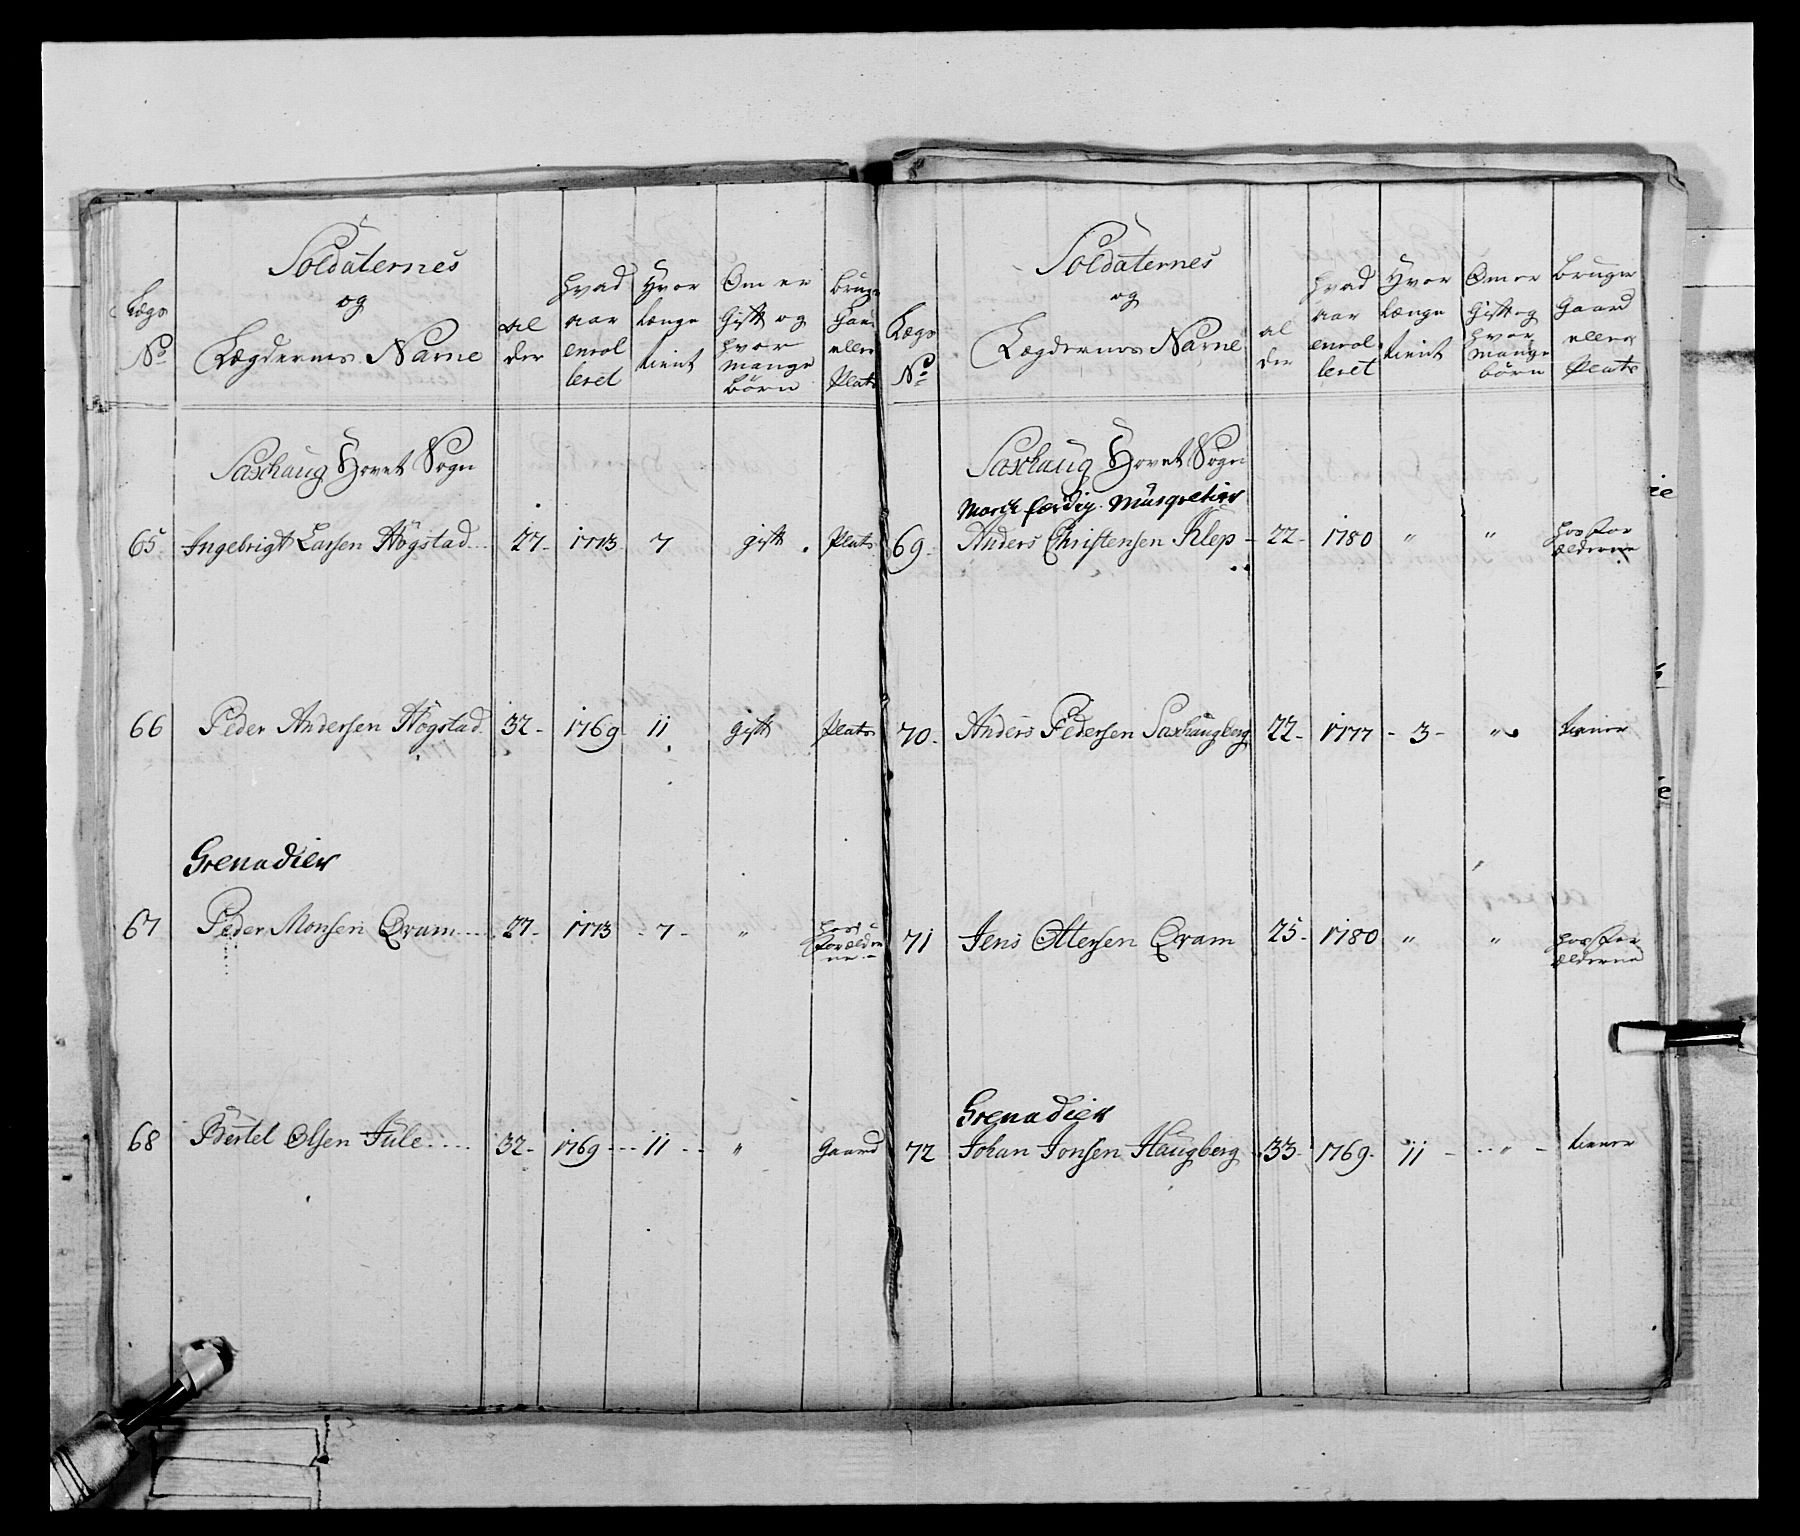 Lægs No
Soldaternes
og
Lægdernes Name
al der
hvad aar enrol leret
Hvor længe tient
Om er Gift og hvor mange børn
bruger Gaard eller Plats
Saxhaug Hovet Sogn
65 Ingebrigt Larsen Högstad 27 1773 7 gift Plats
66 Peder Andersen Högstad 32 1769 11 gift Plats
Grenadier
67 Peder Monsen Qvam 27 1773 7 " hos Forældre ne
68 Bertel Olsen Jule 32 1769 11 " Gaard
Lægs No
Soldaternes
og
Lægdernes Name
al der
hvad aar enrol leret
Hvor længe tient
Om er Gift og hvor mange børn
bruger Gaard eller Plats
Saxhaug Hovet Sogn
March færdig Musqvetier
69 Anders Christensen Klep 22 1780 " " hos For ælderne
70 Anders Pedersen Saxhaugberg 22 1777 3 " tiener
71 Jens Ottersen Qvam 25 1780 " " hos For ælderne
Grenadier
72 Johan Jonsen Haugberg 33 1769 11 " tiener